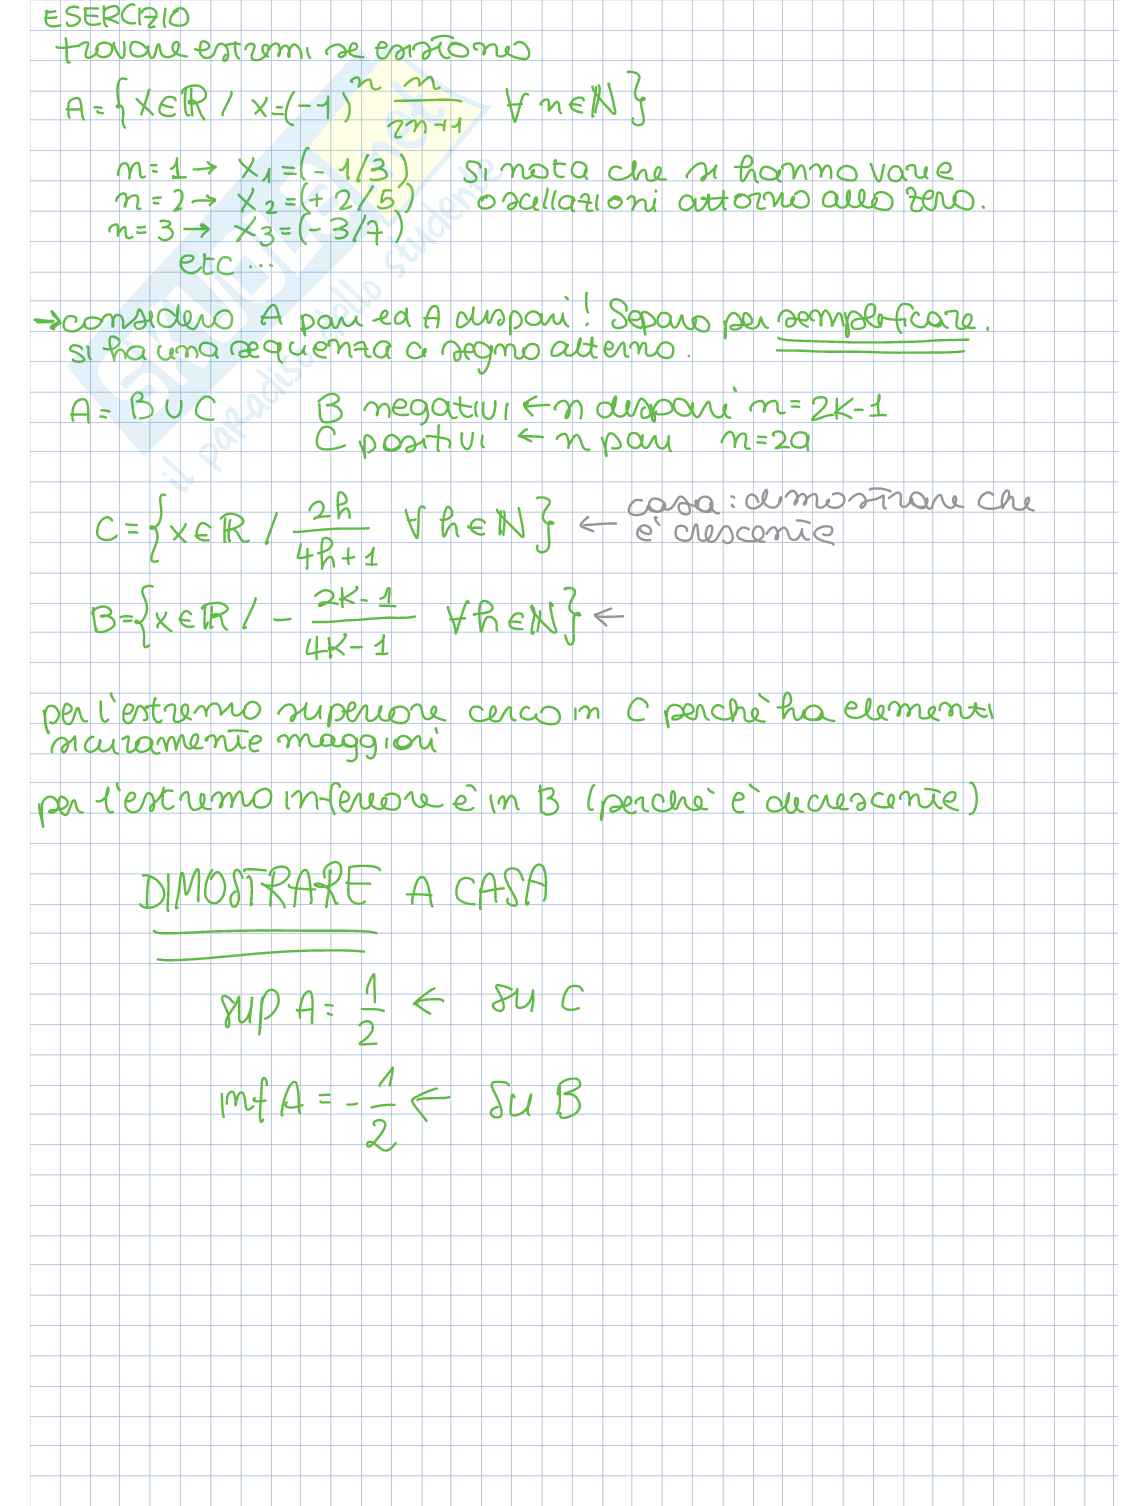 ESERCIZIO
trovare estremi se esistono
A = { x ∈ ℝ / x = (-1)^n n/(2n+1) ∀ n ∈ ℕ }
n = 1 → x₁ = (- 1/3) si nota che si hanno varie
n = 2 → x₂ = (+ 2/5) oscillazioni attorno allo zero.
n = 3 → x₃ = (- 3/7)
etc ...
→ considero A pari ed A dispari! Separo per semplificare.
si ha una sequenza a segno alterno.
A = B ∪ C B negativi ← n dispari n = 2K-1
C positivi ← n pari n = 2a
C = { x ∈ ℝ / 2h/(4h+1) ∀ h ∈ ℕ } ← casa: dimostrare che
è crescente
B = { x ∈ ℝ / - (2K-1)/(4K-1) ∀ h ∈ ℕ } ←
per l'estremo superiore cerco in C perchè ha elementi
sicuramente maggiori
per l'estremo inferiore è in B (perchè è decrescente)
DIMOSTRARE A CASA
sup A = 1/2 ← su C
inf A = - 1/2 ← su B
SKUOLA.net
il paradiso dello studente